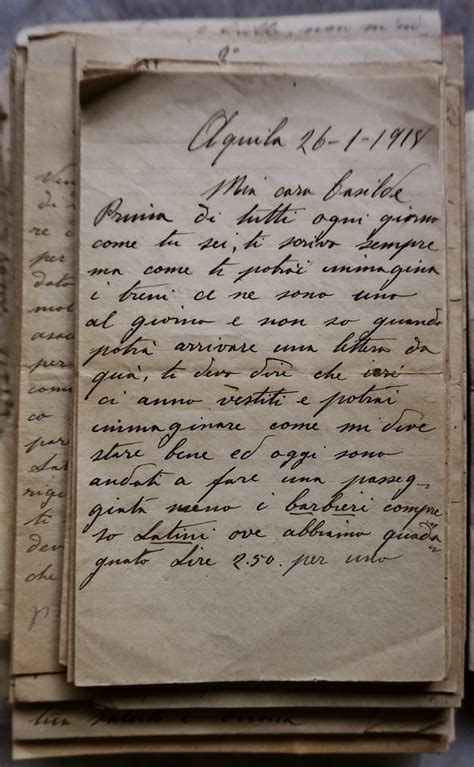 e tutti, non m'in
2°
Aquila 26-1-1918
Mia cara Casilde
Prima di tutti ogni giorno
come tu sei, ti scrivo sempre
ma come ti potrai immagina
i treni ce ne sono uno
al giorno e non so quando
potrà arrivare una lettera da
quà, ti devo dire che ieri
ci anno vestiti e potrai
immaginare come mi deve
stare bene ed oggi sono
andati a fare una passeg-
giata meno i barbieri compre
so Latini ove abbiamo guada-
gnato Lire 2.50. per uno
Ven
di
re
per
dato
mol
asso
per
com
co
par
Lat
rigi
ti
dev
che